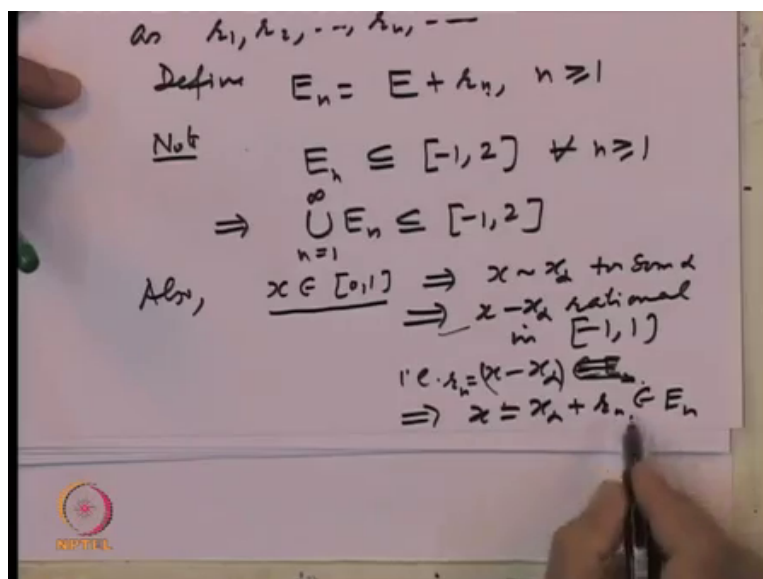 as r₁, r₂, ..., rₙ, ---
Define Eₙ = E + rₙ, n ≥ 1
Note Eₙ ⊆ [-1, 2] ∀ n ≥ 1
⇒ ∞∪n=1 Eₙ ⊆ [-1, 2]
Also, x ∈ [0, 1] ⇒ x ~ x_α for some α
⇒ x - x_α rational
in [-1, 1]
i.e. rₙ = (x - x_α)
⇒ x = x_α + rₙ ∈ Eₙ
NPTEL